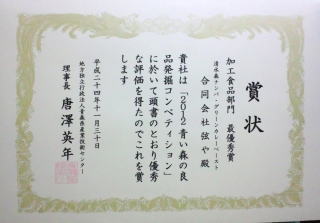 賞状
加工食品部門 最優秀賞
清水森ナンバ・グリーンカレーペースト
合同会社弦や殿
貴社は「2012青い森の良
品発掘コンペティション」
に於いて頭書のとおり優秀
な評価を得たのでこれを賞
します
平成二十四年十一月三十日
地方独立行政法人青森県産業技術センター
理事長 唐澤英年